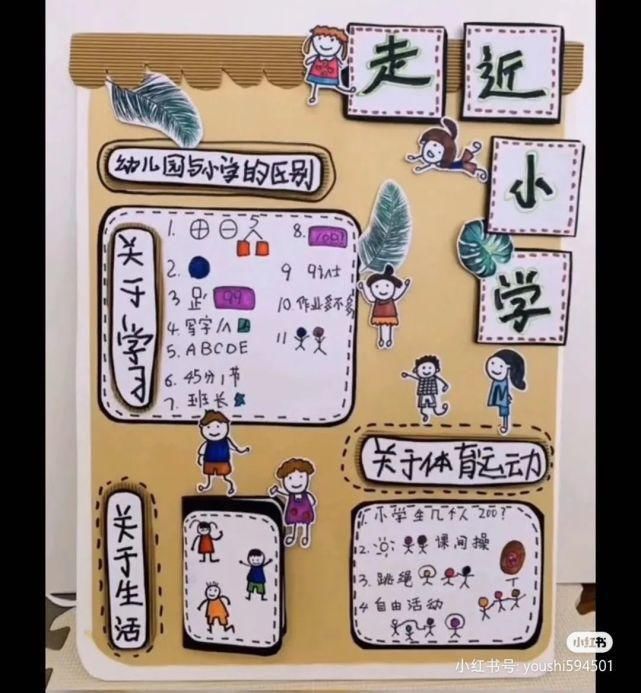 走近
小
学
幼儿园与小学的区别
关于学习
1. ⊕ ⊖ 5
2.
3 足 99
4. 写字
5. ABCDE
6. 45分1节
7. 班长
8. 100!
9
10. 作业多不多
11
关于体育运动
1. 小学生几个人 200?
2. 课间操
3. 跳绳
4 自由活动
关于生活
小红书
小红书号: youshi594501